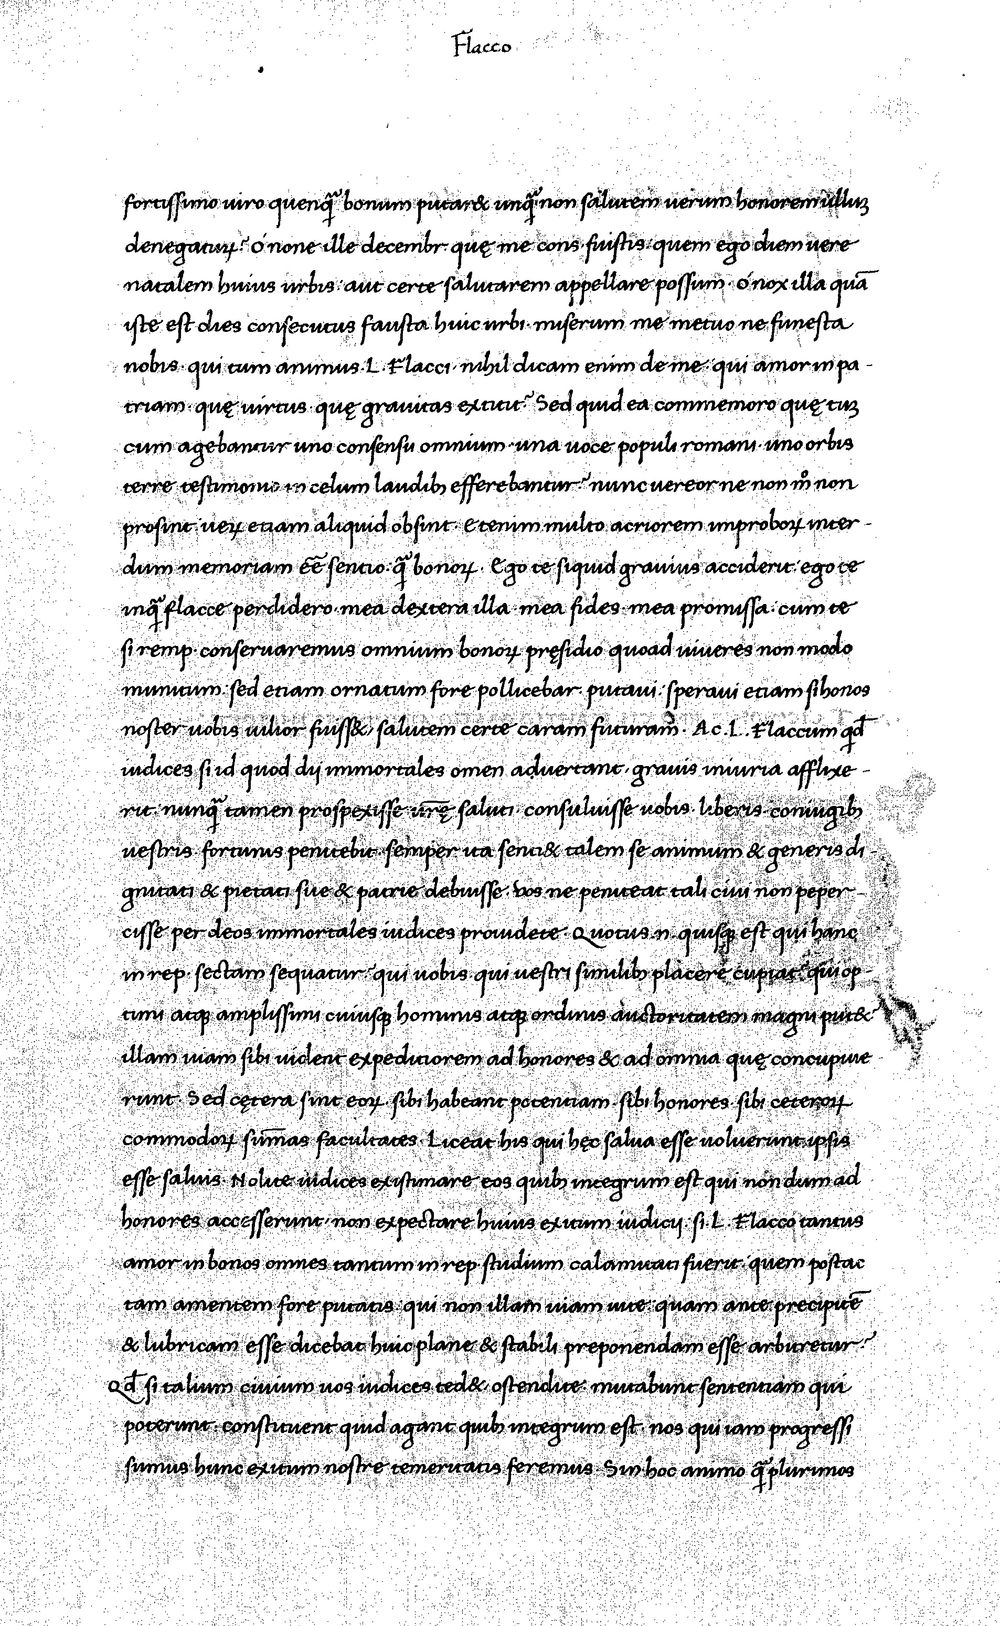 Flacco
fortissimo uiro quenq̃ bonum putar& unq̃ non salutem uerum honorem ulluꝫ
denegaturꝝ? ó none ille decembr̃ quę me cons fuistis. quem ego diem uere
natalem huius urbis. aut certe salutarem appellare possum. ó nox illa quā
iste est dies consecutus fausta huic urbi. miserum me metuo ne funesta
nobis. qui tum animus. L. Flacci. nihil dicam enim de me. qui amor in pa-
triam. quę uirtus. quę grauitas extitit? Sed quid ea commemoro quę tuꝫ
cum agebantur uno consensu omnium. una uoce populi romani. uno orbis
terre testimonio in celum laudibꝫ efferebantur? nunc uereor ne non m̊ non
prosint. ueꝝ etiam aliquid obsint. Etenim multo acriorem improboꝝ inter-
dum memoriam ēē sentio. q̃ bonoꝝ. Ego te siquid grauius acciderit. ego te
inq̃ flacce perdidero. mea dextera illa. mea fides. mea promissa. cum te
si remp. conseruaremus omnium bonoꝝ pręsidio quoad uiueres non modo
munitum. sed etiam ornatum fore pollicebar. putaui. speraui etiam si honos
noster uobis uilior fuiss&, salutem certe caram futuram. Ac. L. Flaccum qd̄
iudices si id quod dij immortales omen aduertant. grauis iniuria afflixe-
rit. nunq̃ tamen prospexisse ur̄ę saluti. consuluisse uobis. liberis. coniugibꝫ
uestris. fortunis penitebit. semper ita senti& talem se animum & generis di-
gnitati & pietati sue & patrie debuisse. Vos ne peniteat tali ciui non peper-
cisse per deos immortales iudices prouidete. Quotus.n. quisqꝫ est qui hanc
in rep. sectam sequatur? qui uobis. qui uestri similibꝫ placere cupiat? qui op-
timi atqꝫ amplissimi cuiusqꝫ hominis atqꝫ ordinis auctoritatem magni put&?
illam uiam sibi uident expeditiorem ad honores & ad omnia quę concupiue
runt. Sed cętera sint eoꝝ. sibi habeant potentiam. sibi honores. sibi ceteroꝝ
commodoꝝ sum̄as facultates. Liceat his qui hęc salua esse uoluerunt ipsis
esse saluis. Nolite iudices existimare eos quibꝫ integrum est qui non dum ad
honores accesserunt. non expectare huius exitum iudicij. si. L. Flacco tantus
amor in bonos omnes tantum in rep studium calamitati fuerit. quem postac
tam amentem fore putatis. qui non illam uiam uite. quam ante precipitē
& lubricam esse dicebat huic plane & stabili preponendam esse arbitretur?
Qd̄ si talium ciuium uos iudices ted&. ostendite. mutabunt sententiam qui
poterunt. constituent quid agant quibꝫ integrum est. nos qui iam progressi
sumus hunc exitum nostre temeritatis feremus. Sin hoc animo q̃ plurimos